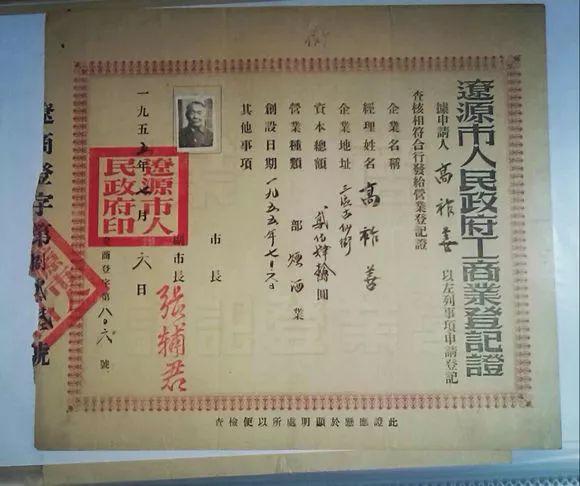 遼源市人民政府工商業登記證
據申請人 高祚善 以左列事項申請登記
查核相符合行發給營業登記證
企業名稱
經理姓名 高祚善
企業地址
資本總額 圓
營業種類 部 煙酒 業
創設日期 一九五五年七月六日
其他事項
市長
副市長 張輔君
一九五五年七月六日
遼源市人民政府印
商登字第八〇六號
遼商登字第 號
此證應懸於顯明處所以便檢查